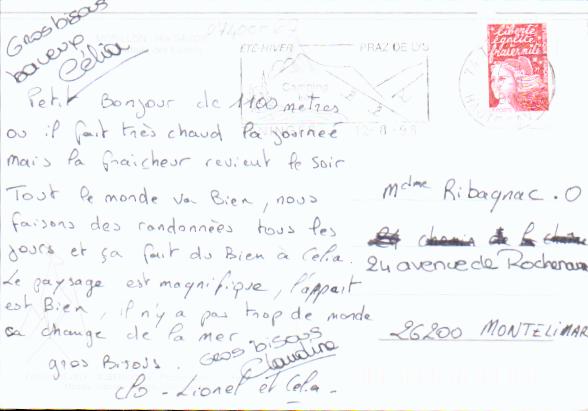 Gros bisous
Célia
ETE-HIVER
PRAZ DE LYS
Camping
12-8-98
Liberté
égalité
fraternité
Petit Bonjour de 1100 metres
ou il fait très chaud la journeé
mais la fraicheur revient le soir
Tout le monde va Bien, nous
faisons des randonnées tous les
jours et ça fait du Bien à Celia.
Le paysage est magnifique, l'appart
est Bien, il n'y a pas trop de monde
ca change de la mer
gros Bisous.
Gros bisous
Claudine
Lionel et Celia -
Mdme Ribagnac . O
24 avenue de
26200 MONTELIMAR